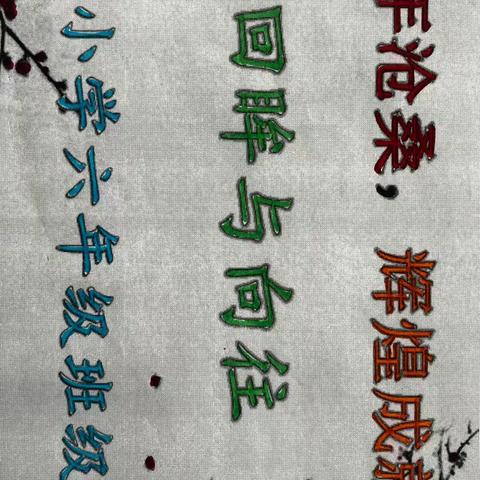 年沧桑，辉煌成就
回眸与向往
小学六年级班级